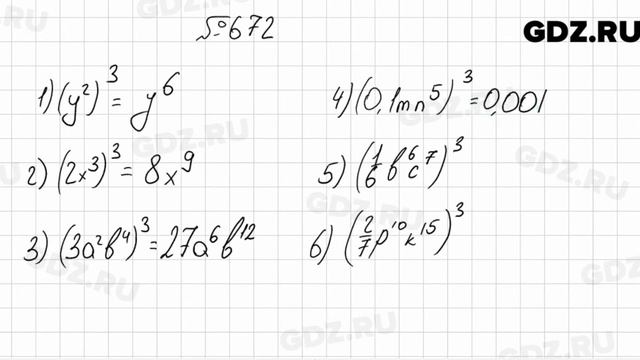 GDZ.RU
№672
1) (y²)³ = y⁶
2) (2x³)³ = 8x⁹
3) (3a²b⁴)³ = 27a⁶b¹²
4) (0,1mn⁵)³ = 0,001
5) (1/6 b⁶c⁷)³
6) (2/7 p¹⁰k¹⁵)³
GDZ.RU
GDZ.RU
GDZ.RU
GDZ.RU
GDZ.RU
GDZ.RU